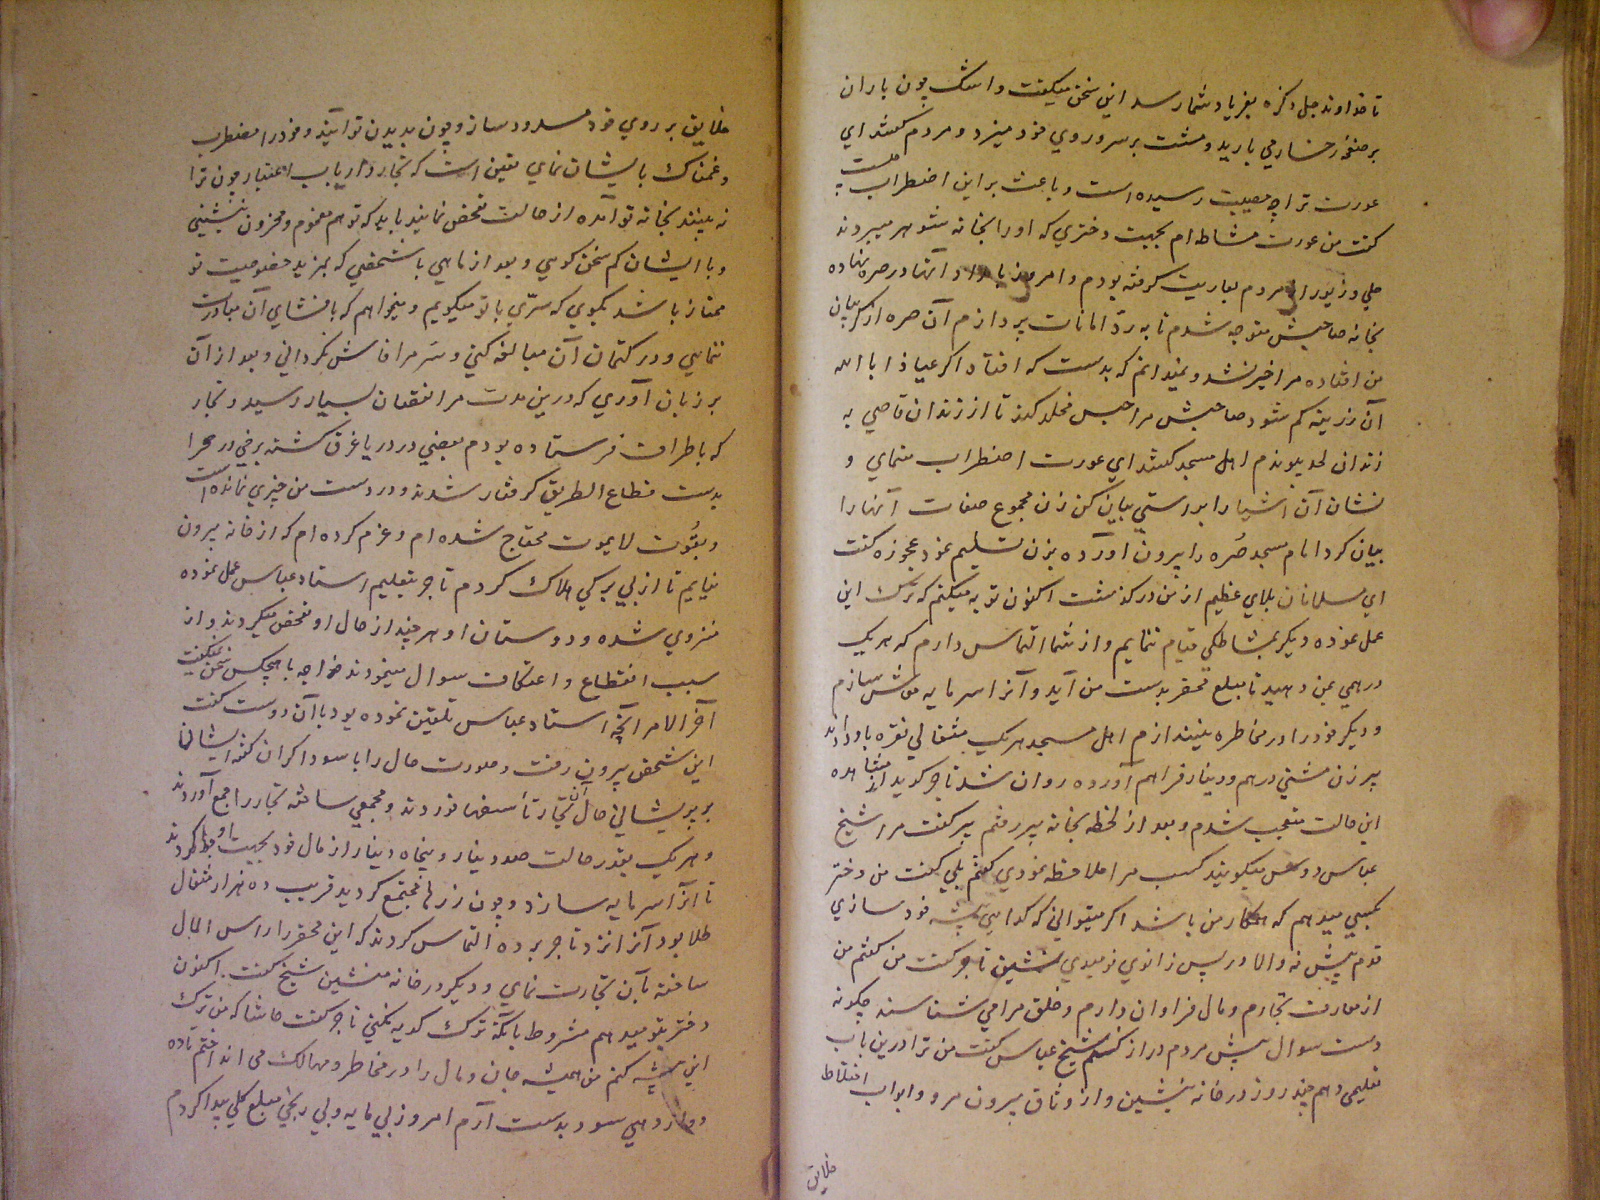 تا خداوند جل ذکره بفریاد شما رسد این سخن میگفت و اشک چون باران
بر صفحۀ رخسار می بارید و مشت بر سر و روی خود میزد و مردم گفتند ای
عورت ترا چه مصیبت رسیده است و باعث بر این اضطراب چیست
گفت من عورت مشاطه ام بجهت دختری که او را بخانه شوهر میبردند
حلی و زیور از مردم بعاریت گرفته بودم و امروز بامداد آنها در صره نهاده
بخانه صاحبش متوجه شدم تا به رد امانات پردازم آن صره از گریبان
من افتاده مرا خبر نشد و نمیدانم که بدست که افتاد اگر عیاذا بالله
آن زرینه گم شود صاحبش مرا حبس مخلد کند تا از زندان قاضی به
زندان لحد پیوندم اهل مسجد گفتند ای عورت اضطراب منمای و
نشان آن اشیا را براستی بیان کن زن مجموع صفات آنها را
بیان کرد امام مسجد صره را بیرون آورده بزن تسلیم نمود عجوزه گفت
ای مسلمانان بلای عظیم از من درگذشت اکنون توبه میکنم که ترک این
عمل نموده دیگر بمشاطگی قیام ننمایم و از شما التماس دارم که هر یک
درهمی بمن دهید تا مبلغ محقر بدست من آید و آنرا سرمایه معاش سازم
و دیگر خود را در مخاطره نیندازم اهل مسجد هر یک مثقالی نقره باو دادند
پیر زن مشتی درهم و دینار فراهم آورده روان شد تاجر گوید از مشاهده
این حالت متعجب شدم و بعد از لحظه بخانه پیر رفتم پیر گفت مرا شیخ
عباس دوس میگویند کسب مرا ملاحظه نمودی گفتم بلی گفت من دختر
بکسی میدهم که همکار من باشد اگر میتوانی که گدایی پیشه خود سازی
قدم پیش نه والا در پس زانوی نومیدی نشین تاجر گفت من گفتم من
از معارف تجارم و مال فراوان دارم و خلق مرا می شناسند چگونه
دست سوال پیش مردم دراز کنم شیخ عباس گفت من ترا درین باب
تعلیمی دهم چند روز در خانه بنشین و از وثاق بیرون مرو و ابواب اختلاط
خلایق
خلایق بر روی خود مسدود ساز و چون بدیدن تو آیند و خود را مضطرب
و غمناک بایشان نمای یقین است که تجار و ارباب اعتبار چون ترا
نه بینند بخانه تو آمده از حالت تفحص نمایند باید که تو هم مغموم و محزون بنشینی
و با ایشان کم سخن گویی و بعد از ماهی با شخصی که بمزید خصوصیت تو
ممتاز باشد بگوی که سری با تو میگویم و میخواهم که بافشای آن مبادرت
ننمایی و در کتمان آن مبالغه کنی و سر مرا فاش نگردانی و بعد از آن
بر زبان آوری که درین مدت مرا نقصان بسیار رسید و تجار
که باطراف فرستاده بودم بعضی در دریا غرق گشته برخی در صحرا
بدست قطاع الطریق گرفتار شدند و در دست من چیزی نمانده است
و بقوت لایموت محتاج شده ام و عزم کرده ام که از خانه بیرون
نیایم تا از بی برگی هلاک گردم تاجر بتعلیم استاد عباس عمل نموده
منزوی شده و دوستان او هر چند از حال او تفحص میکردند و از
سبب انقطاع و اعتکاف سوال مینمودند خواجه با هیچکس سخن نمیگفت
آخر الامر آنچه استاد عباس تلقین نموده بود با آن دوست گفت
این شخص بیرون رفت و صورت حال را با سوداگران گفته ایشان
بر پریشانی حال آن تجار تأسفها خوردند و مجمعی ساخته تجار را جمع آوردند
و هر یک بقدر حالت صد دینار و پنجاه دینار از مال خود بجهت او جدا کردند
تا آنرا سرمایه سازد و چون زرها مجتمع گردید قریب ده هزار مثقال
طلا بود آنرا نزد تاجر برده التماس کردند که این محقر را راس المال
ساخته بآن تجارت نمای و دیگر در خانه منشین شیخ گفت اکنون
دختر بتو میدهم مشروط بآنکه ترک گدیه نکنی تاجر گفت حاشا که من ترک
این پیشه کنم من همیشه جان و مال را در مخاطر و مهالک می انداختم تا ده
دوازدهی سود بدست آرم امروز بی مایه و بی رنجی مبلغ کلی پیدا کردم